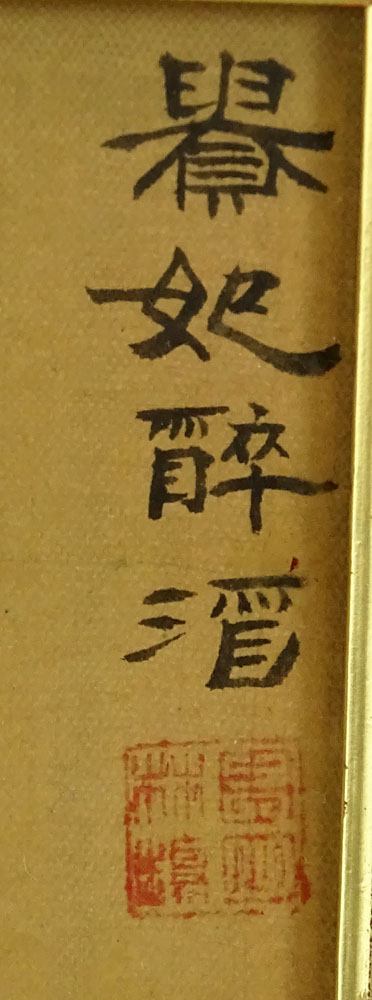 貴妃醉酒